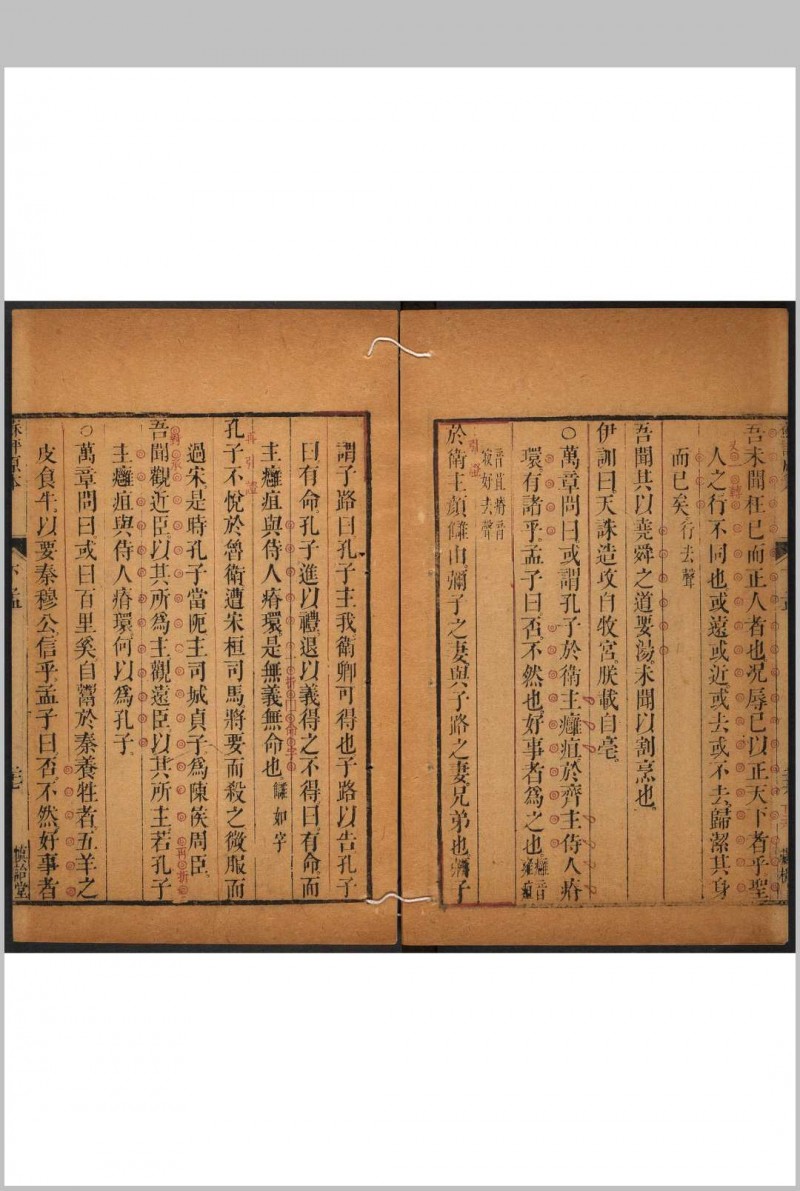 吾未聞枉己而正人者也况辱己以正天下者乎聖
人之行不同也或遠或近或去或不去歸潔其身
而已矣行去聲
吾聞其以堯舜之道要湯未聞以割烹也
伊訓曰天誅造攻自牧宮朕載自亳
○萬章問曰或謂孔子於衛主癰疽於齊主侍人瘠
環有諸乎孟子曰否不然也好事者爲之也癰音雍疽
音苴瘠音
好去聲
引證
於衛主顏讎由彌子之妻與子路之妻兄弟也彌子
謂子路曰孔子主我衛卿可得也子路以告孔子
曰有命孔子進以禮退以義得之不得曰有命而
主癰疽與侍人瘠環是無義無命也讎如字
再引證
孔子不悅於魯衛遭宋桓司馬將要而殺之微服而
過宋是時孔子當阨主司城貞子爲陳侯周臣
吾聞觀近臣以其所爲主觀遠臣以其所主若孔子
主癰疽與侍人瘠環何以爲孔子
○萬章問曰或曰百里奚自鬻於秦養牲者五羊之
皮食牛以要秦穆公信乎孟子曰否不然好事者
蘇評原本
下孟
慎詒堂